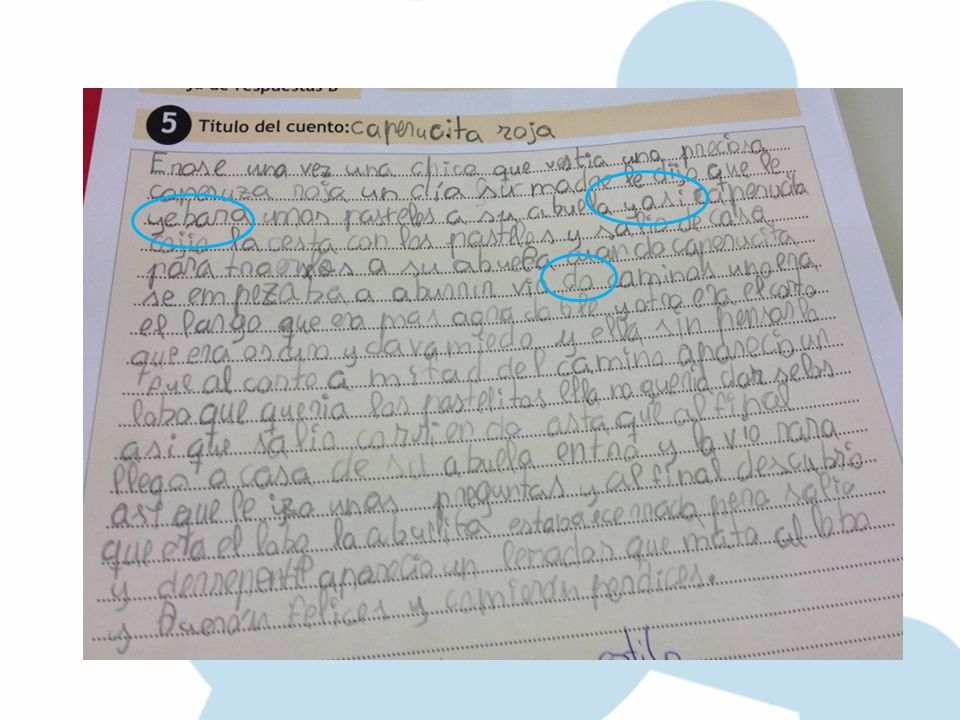 ja de respuestas B
5 Título del cuento: caperucita roja
Erase una vez una chica que vestia una preciosa
caperuza roja un día su madre le dijo que le
yebara unos pasteles a su abuela y asi caperucita
cojio la cesta con los pasteles y salio de casa
para traerlos a su abuela cuando caperucita
se empezaba a aburrir vio do caminos uno era
el largo que era mas agradable y otro era el corto
que era oscuro y dava miedo y ella sin pensarlo
fue al corto a mitad del camino aparecio un
lobo que queria los pastelitos ella no queria darselos
asi que salio corriendo asta que al final
llego a casa de su abuela entro y la vio rara
asi que le izo unas preguntas y al final descubrio
que era el lobo la abuelita estaba ecerrada pero salio
y derrepente aparecio un leñador que mata al lobo
y fueron felices y comieron perdices.
estilo